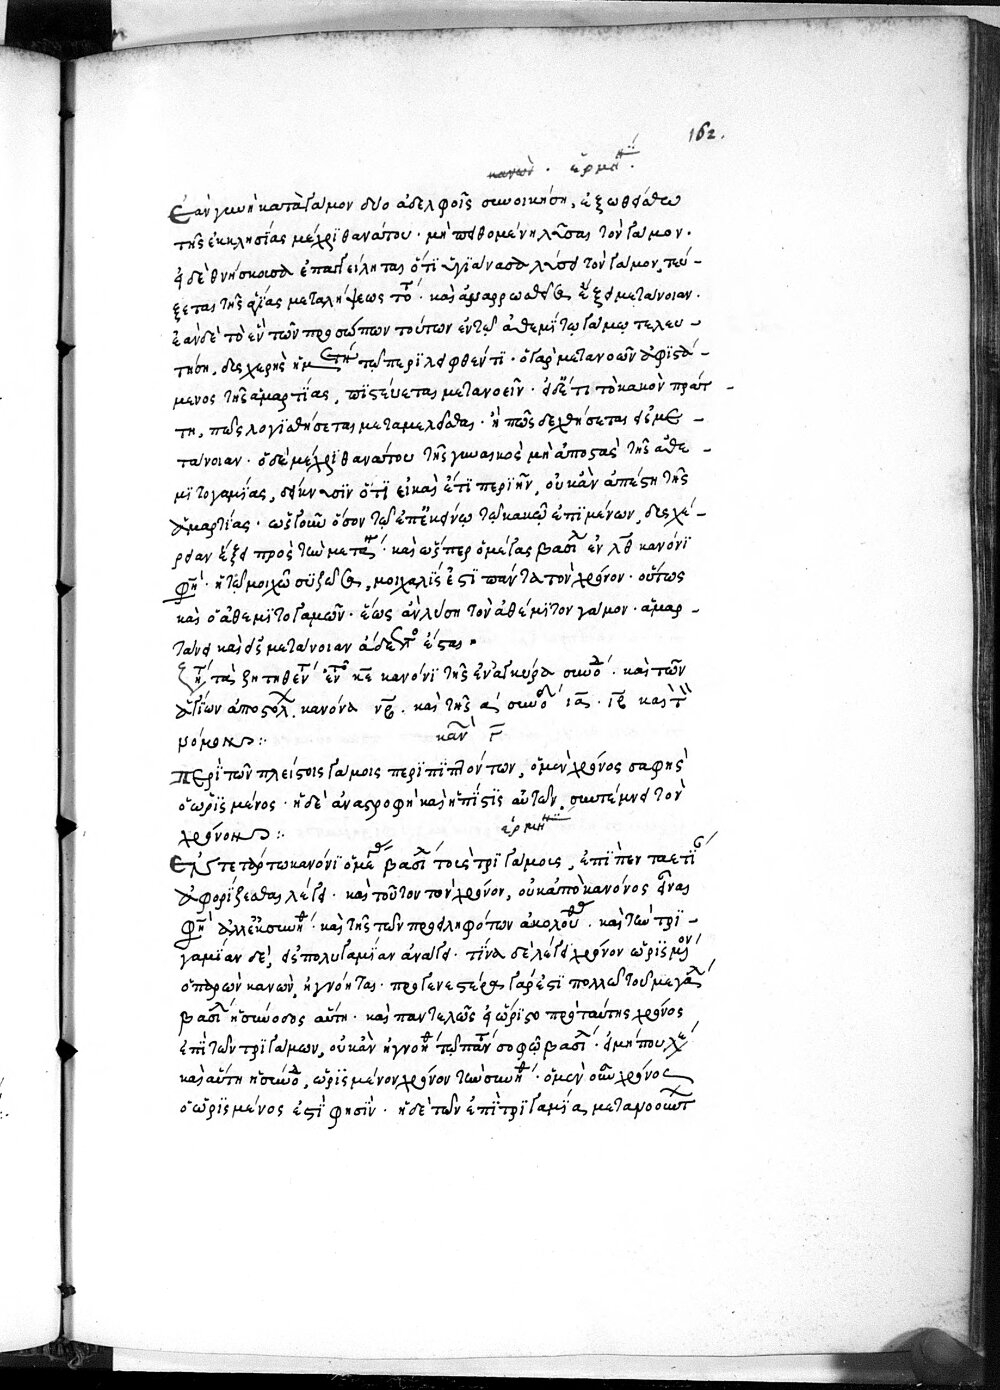 162.
κανὼν. ἑρμη
Ἐὰν γυνὴ κατὰ γάμον δυο ἀδελφοῖς συνοικήση, ἐξωθείσθω
τῆς ἐκκλησίας μέχρι θανάτου. μὴ πειθομένη λῦσαι τὸν γάμον.
εἰ δὲ θνήσκουσα ἐπαγγείληται ὅτι ὑγιάνασα λύσει τὸν γάμον, τεύ-
ξεται τῆς ἁγίας μεταλήψεως τό. καὶ ἀναρρωσθεῖσα ἕξει μετάνοιαν.
ἐὰν δὲ τὸ ἓν τῶν προσώπων τούτων ἐν τῷ ἀθεμίτω γάμω τελευ-
τήση, δυσχερὴς ἡ μετάνοια τῷ περιλειφθέντι. ὁ γὰρ μετανοῶν ἀφιστά-
μενος τῆς ἁμαρτίας, πιστεύεται μετανοεῖν. ὁ δὲ ἔτι τὸ κακὸν πράτ-
τη, πῶς λογισθήσεται μεταμελεῖσθαι. ἢ πῶς δεχθήσεται εἰς με-
τάνοιαν. ὁ δὲ μέχρι θανάτου τῆς γυναικὸς μὴ ἀποστὰς τῆς ἀθε-
μιτογαμίας, δείκνυσιν ὅτι εἰ καὶ ἔτι περιῆν, οὐκ ἂν ἀπέστη τῆς
ἁμαρτίας. ὥστ οὖν ὅσον τῷ ἐπεκείνω τῷ κακῷ ἐπιμένων, δυσχέ-
ρειαν ἕξει πρὸς τὴν μετά. καὶ ὥσπερ ὁ μέγας βασίλ ἐν λθ κανόνι
φη. ἡ τῷ μοιχῷ συζῶσα, μοιχαλίς ἐστι πάντα τὸν χρόνον. οὕτως
καὶ ὁ ἀθεμιτογαμῶν. ἕως ἂν λύση τὸν ἀθέμιτον γάμον. ἁμαρ-
τάνει καὶ εἰς μετάνοιαν ἄδεκτο ἔσται.
ζήτ τὰ ζητηθέντ ἐν τῷ κε κανόνι τῆς ἐν ἀγκύρα συνόδ. καὶ τῶν
ἁγίων ἀποστολ κανόνα. καὶ τῆς συνόδ. καὶ
νόμους :·
καν γ
Περὶ τῶν πλείστοις γάμοις περιπιπτόντων, ὁ μὲν χρόνος σαφὴς
ὁ ὡρισμένος. ἡ δὲ ἀναστροφὴ καὶ ἡ πίστις αὐτῶν, συντέμνει τὸν
χρόνον :·
ἑρμη
Ἐν τετάρτω κανόνι ὁ μέγ βασίλ τοὺς τριγάμους, ἐπὶ πενταετί
ἀφορίζεσθαι λέγει. καὶ τοῦτον τὸν χρόνον, οὐκ ἀπὸ κανόνος τινὸς
φη ἀλλ ἐκ συνη. καὶ τῆς τῶν προειληφότων ἀκολουθ. καὶ τὴν τρι-
γαμίαν δὲ, εἰς πολυγαμίαν ἀνάγει. τίνα δὲ λέγει χρόνον ὡρισμον
ὁ παρὼν κανὼν, ἠγνόηται. προγενεστέρα γάρ ἐστι πολλῷ τοῦ μεγάλ
βασιλ ἡ σύνοδος αὕτη. καὶ παντελῶς εἰ ὥριστο πρὸ ταύτης χρόνος
ἐπὶ τῶν τριγάμων, οὐκ ἂν ἠγνοη τῷ πάν σοφῷ βασιλ. εἰ μή που
καὶ αὕτη ἡ σύνοδ, ὡρισμένον χρόνον τὴν συνη. ὁ μὲν οὖν χρόνος
ὁ ὡρισμένος ἐστὶ φησὶν. ἡ δὲ τῶν ἐπὶ τριγαμία μετανοούντ